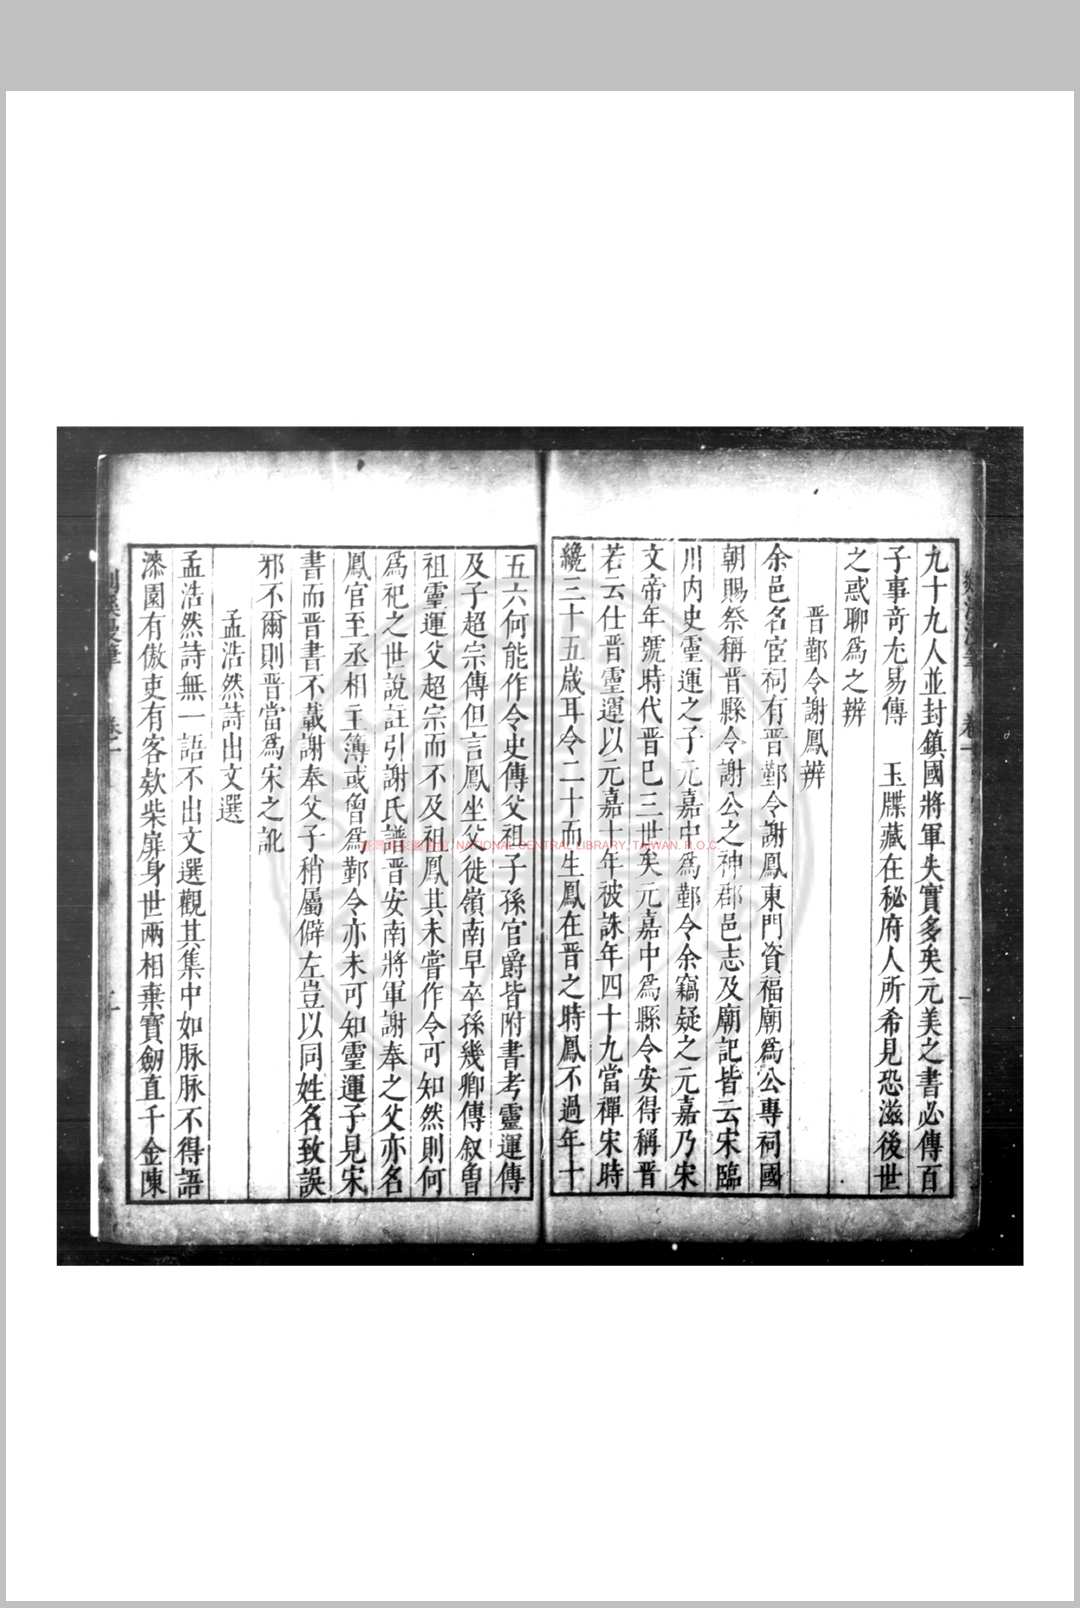 九十九人並封鎮國將軍失實多矣元美之書必傳百
子事竒尢易傳　玉牒藏在秘府人所希見恐滋後世
之惑聊爲之辨
晋鄞令謝鳳辨
余邑名宦祠有晋鄞令謝鳳東門資福廟爲公專祠國
朝賜祭稱晋縣令謝公之神郡邑志及廟記皆云宋臨
川内史靈運之子元嘉中爲鄞令余竊疑之元嘉乃宋
文帝年號時代晋已三世矣元嘉中爲縣令安得稱晋
若云仕晋靈運以元嘉十年被誅年四十九當禪宋時
纔三十五歲耳令二十而生鳳在晋之時鳳不過年十
五六何能作令史傳父祖子孫官爵皆附書考靈運傳
及子超宗傳但言鳳坐父徙嶺南早卒孫幾卿傳叙曽
祖靈運父超宗而不及祖鳳其未嘗作令可知然則何
爲祀之世說註引謝氏譜晋安南將軍謝奉之父亦名
鳳官至丞相主簿或曽爲鄞令亦未可知靈運子見宋
書而晋書不載謝奉父子稍屬僻左豈以同姓名致誤
邪不爾則晋當爲宋之訛
孟浩然詩出文選
孟浩然詩無一語不出文選觀其集中如脉脉不得語
漆園有傲吏有客欸柴扉身世兩相棄寶劒直千金陳
剡溪漫筆 卷一 二
NATIONAL CENTRAL LIBRARY, TAIWAN, R.O.C.